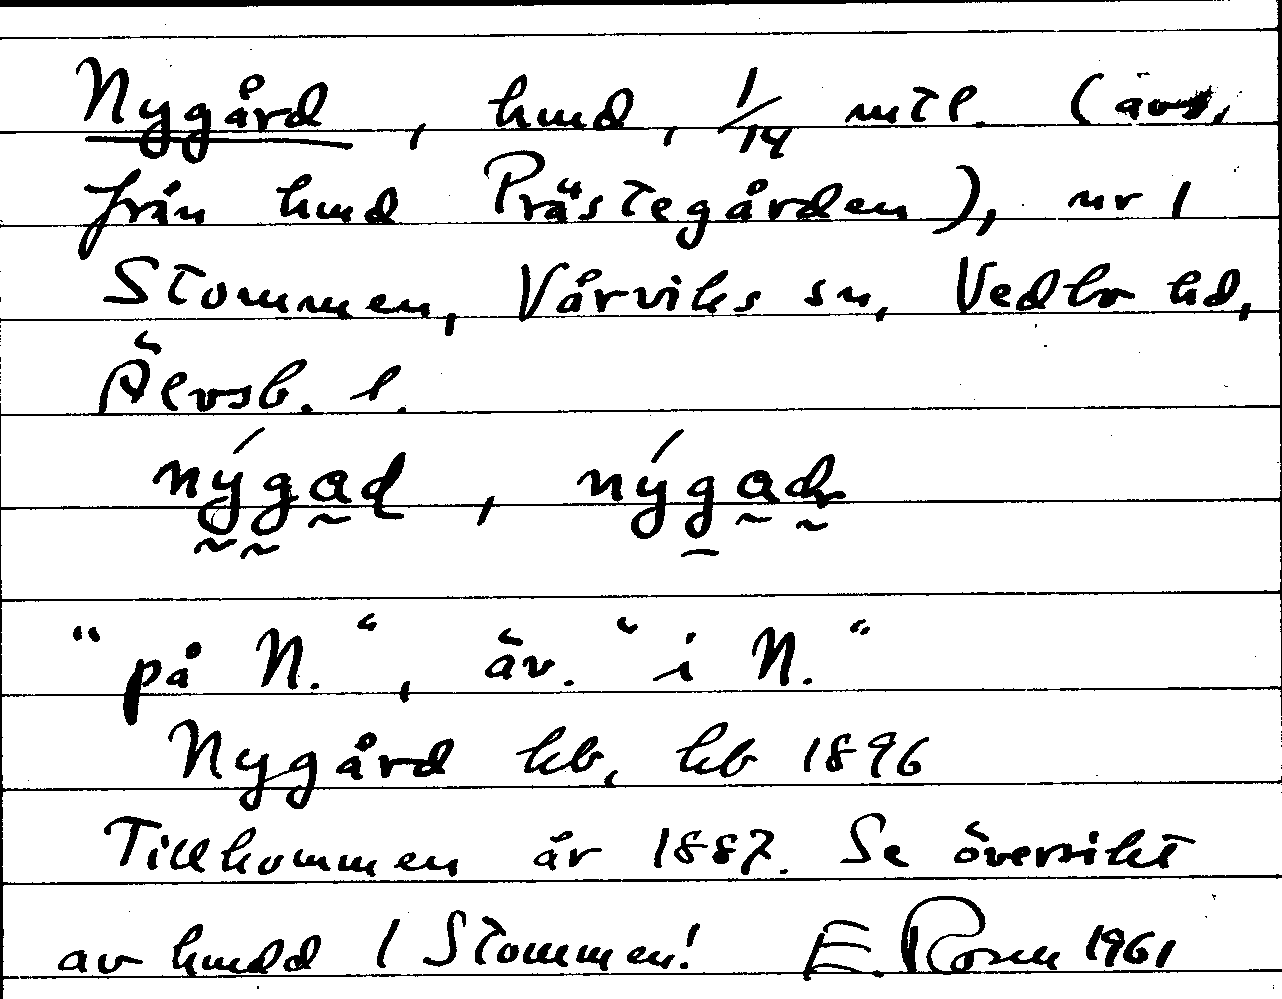 Nygård, hmd, 1/14 mtl. (avs.
från hmd Prästegården), nr 1
Stommen, Vårviks sn, Vedbo hd,
Älvsb. l.
nýgad, nýgad
"på N.", äv. "i N."
Nygård kb, kb 1896
Tillkommen år 1887. Se översikt
av hmdd 1 Stommen! E. Rosén 1961